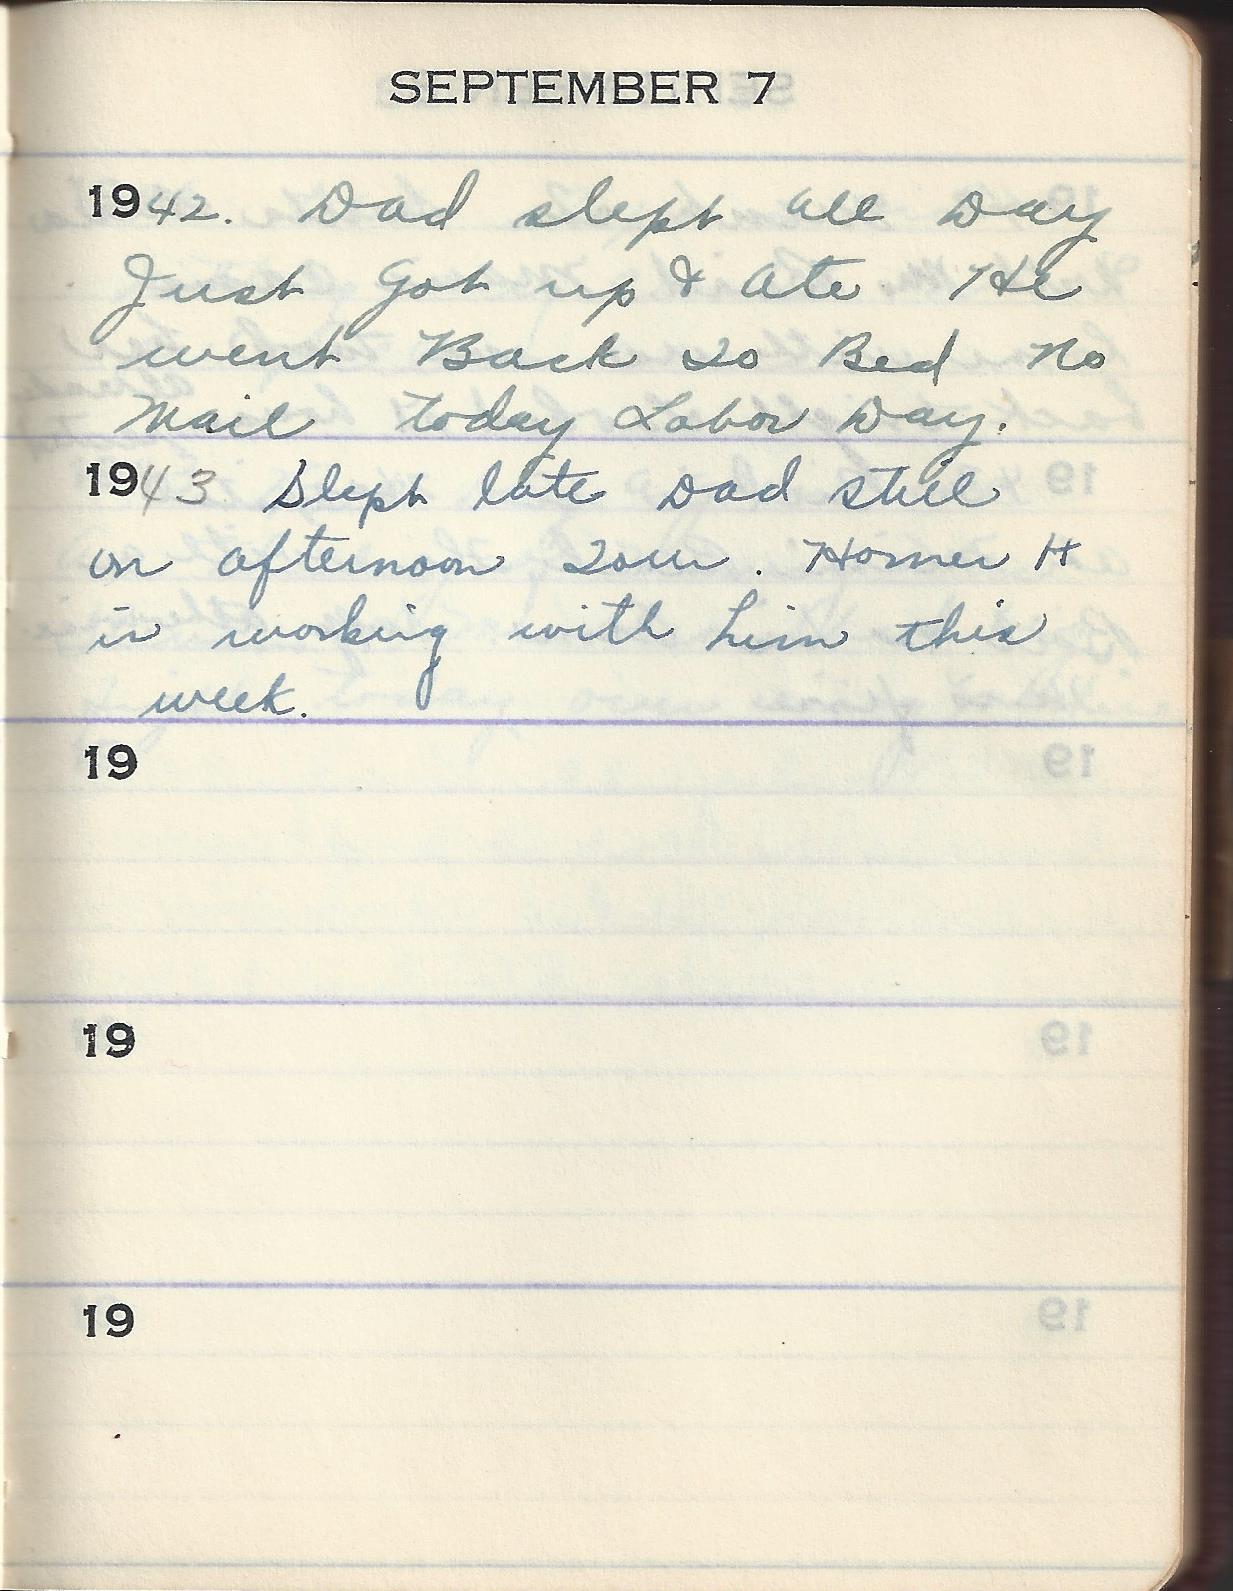 SEPTEMBER 7
1942. Dad slept all Day
Just Got up & ate. He
went Back to Bed No
Mail today Labor Day.
1943 Slept late Dad still
on afternoon Tour. Homer H
is working with him this
week.
19
19
19